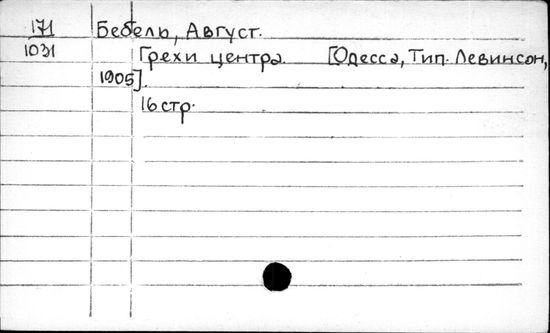 171 Бебель, Август.
1031 Грехи центра. [Одесса, Тип. Левинсон,
1905].
16 стр.